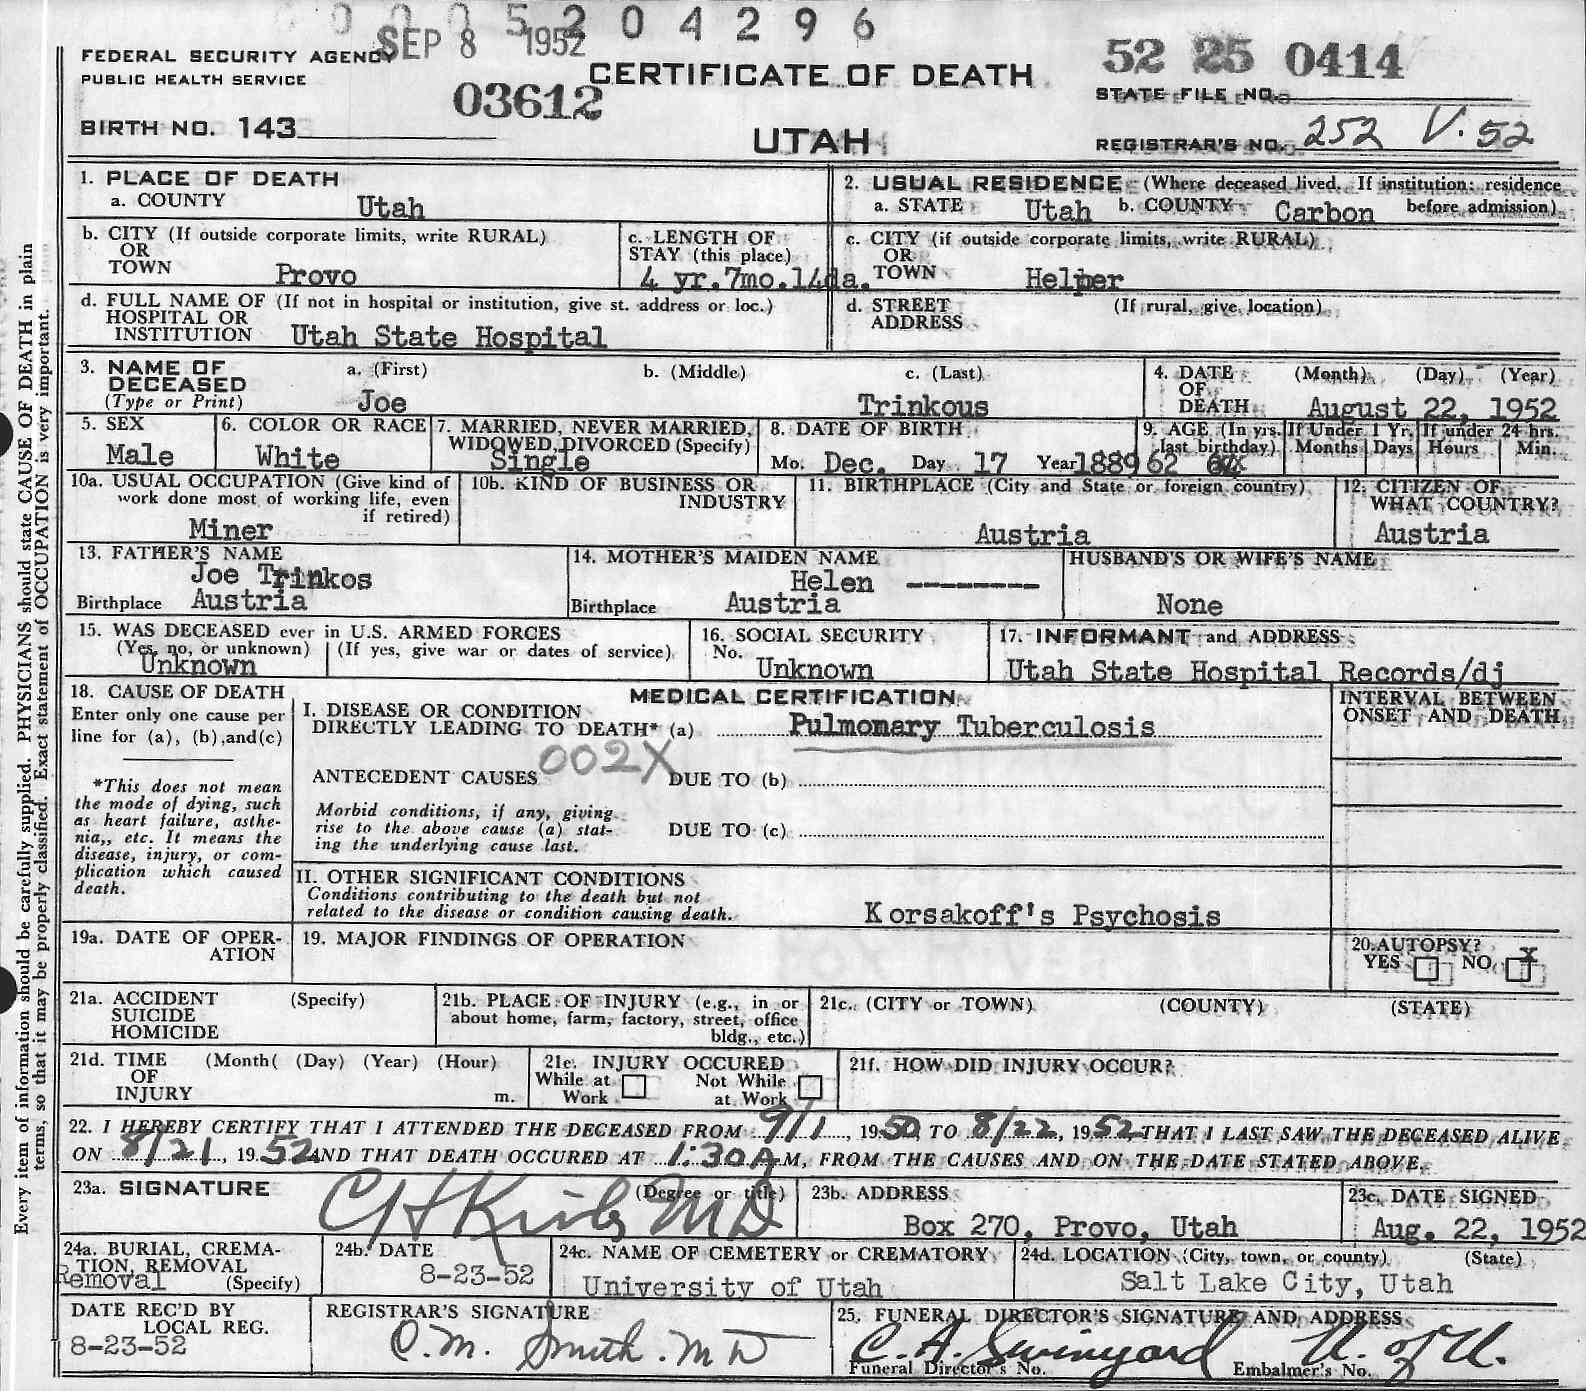 0 0 0 5 2 0 4 2 9 6
SEP 8 1952
FEDERAL SECURITY AGENCY
PUBLIC HEALTH SERVICE
BIRTH NO. 143
03612
CERTIFICATE OF DEATH
UTAH
52 25 0414
STATE FILE NO.
REGISTRAR'S NO. 252 V. 52
1. PLACE OF DEATH
a. COUNTY Utah
2. USUAL RESIDENCE (Where deceased lived. If institution: residence before admission)
a. STATE Utah b. COUNTY Carbon
b. CITY (If outside corporate limits, write RURAL)
OR
TOWN Provo
c. LENGTH OF
STAY (this place)
4 yr. 7mo. 14da.
c. CITY (if outside corporate limits, write RURAL)
OR
TOWN Helper
d. FULL NAME OF (If not in hospital or institution, give st. address or loc.)
HOSPITAL OR
INSTITUTION Utah State Hospital
d. STREET (If rural, give location)
ADDRESS
3. NAME OF
DECEASED
(Type or Print)
a. (First) b. (Middle) c. (Last)
Joe Trinkous
4. DATE (Month) (Day) (Year)
OF
DEATH August 22, 1952
5. SEX
Male
6. COLOR OR RACE
White
7. MARRIED, NEVER MARRIED,
WIDOWED, DIVORCED (Specify)
Single
8. DATE OF BIRTH
Mo. Dec. Day 17 Year 1889
9. AGE (In yrs.
last birthday)
62
If Under 1 Yr.
Months Days
If under 24 hrs.
Hours Min.
10a. USUAL OCCUPATION (Give kind of
work done most of working life, even
if retired)
Miner
10b. KIND OF BUSINESS OR
INDUSTRY
11. BIRTHPLACE (City and State or foreign country)
Austria
12. CITIZEN OF
WHAT COUNTRY?
Austria
13. FATHER'S NAME
Joe Trinkos
Birthplace Austria
14. MOTHER'S MAIDEN NAME
Helen --------
Birthplace Austria
HUSBAND'S OR WIFE'S NAME
None
15. WAS DECEASED ever in U.S. ARMED FORCES
(Yes, no, or unknown) (If yes, give war or dates of service)
Unknown
16. SOCIAL SECURITY
No.
Unknown
17. INFORMANT and ADDRESS
Utah State Hospital Records/dj
18. CAUSE OF DEATH
Enter only one cause per
line for (a), (b), and(c)
*This does not mean
the mode of dying, such
as heart failure, asthe-
nia,, etc. It means the
disease, injury, or com-
plication which caused
death.
MEDICAL CERTIFICATION
I. DISEASE OR CONDITION
DIRECTLY LEADING TO DEATH* (a) Pulmonary Tuberculosis
002X
ANTECEDENT CAUSES DUE TO (b)
Morbid conditions, if any, giving
rise to the above cause (a) stat-
ing the underlying cause last.
DUE TO (c)
II. OTHER SIGNIFICANT CONDITIONS
Conditions contributing to the death but not
related to the disease or condition causing death.
Korsakoff's Psychosis
INTERVAL BETWEEN
ONSET AND DEATH
19a. DATE OF OPER-
ATION
19. MAJOR FINDINGS OF OPERATION
20. AUTOPSY?
YES NO X
21a. ACCIDENT (Specify)
SUICIDE
HOMICIDE
21b. PLACE OF INJURY (e.g., in or
about home, farm, factory, street, office
bldg., etc.)
21c. (CITY or TOWN) (COUNTY) (STATE)
21d. TIME (Month( (Day) (Year) (Hour)
OF
INJURY m.
21e. INJURY OCCURED
While at Work
Not While at Work
21f. HOW DID INJURY OCCUR?
22. I HEREBY CERTIFY THAT I ATTENDED THE DECEASED FROM 9/1, 1950, TO 8/22, 1952, THAT I LAST SAW THE DECEASED ALIVE
ON 8/21, 1952 AND THAT DEATH OCCURED AT 1:30 A M, FROM THE CAUSES AND ON THE DATE STATED ABOVE.
23a. SIGNATURE (Degree or title)
MD
23b. ADDRESS
Box 270, Provo, Utah
23c. DATE SIGNED
Aug. 22, 1952
24a. BURIAL, CREMA-
TION, REMOVAL
Removal (Specify)
24b. DATE
8-23-52
24c. NAME OF CEMETERY or CREMATORY
University of Utah
24d. LOCATION (City, town, or county) (State)
Salt Lake City, Utah
DATE REC'D BY
LOCAL REG.
8-23-52
REGISTRAR'S SIGNATURE
O.M. Smith. MD
25. FUNERAL DIRECTOR'S SIGNATURE AND ADDRESS
C.A. Swinyard U. of U.
Funeral Director's No. Embalmer's No.
Every item of information should be carefully supplied. PHYSICIANS should state CAUSE OF DEATH in plain
terms, so that it may be properly classified. Exact statement of OCCUPATION is very important.